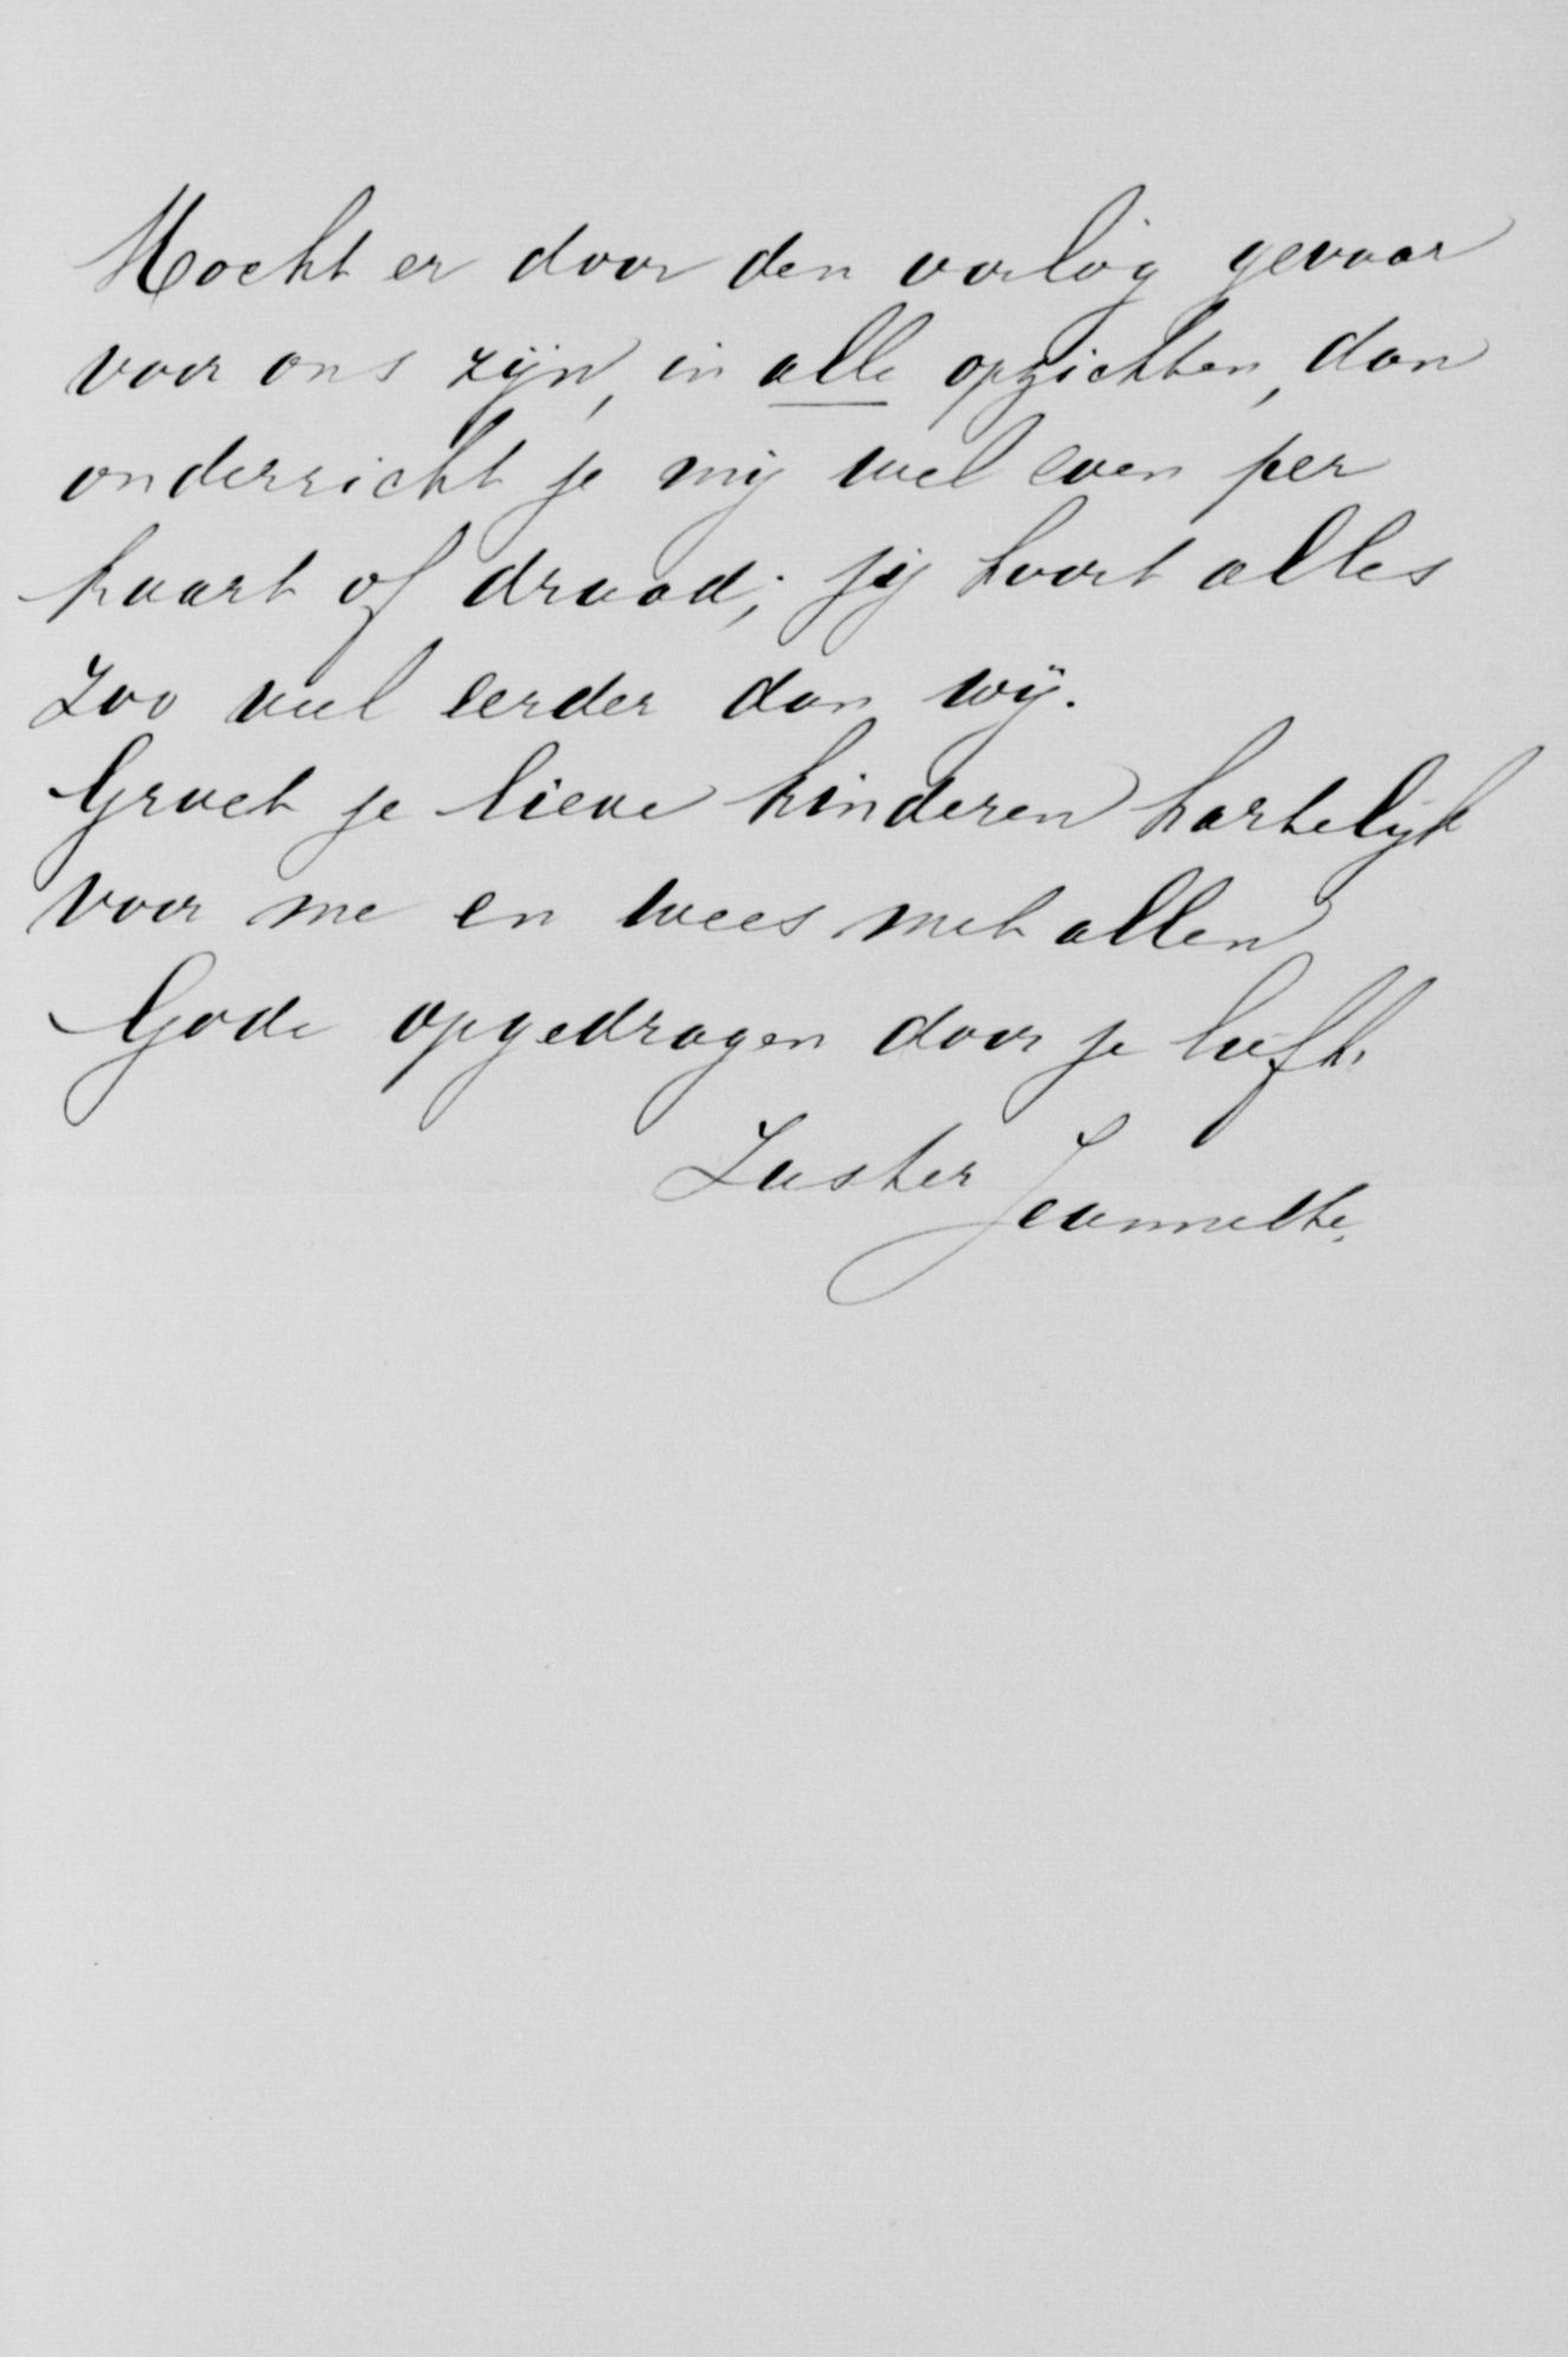 Mocht er door den oorlog gevaar
voor ons zijn, in alle opzichten, dan
onderricht je mij wel even per
kaart of draad; jij hoort alles
zoo veel eerder dan wij.
Groet je lieve kinderen hartelijk
voor me en wees met allen
Gode opgedragen door je liefh.
Zuster Jeannette.